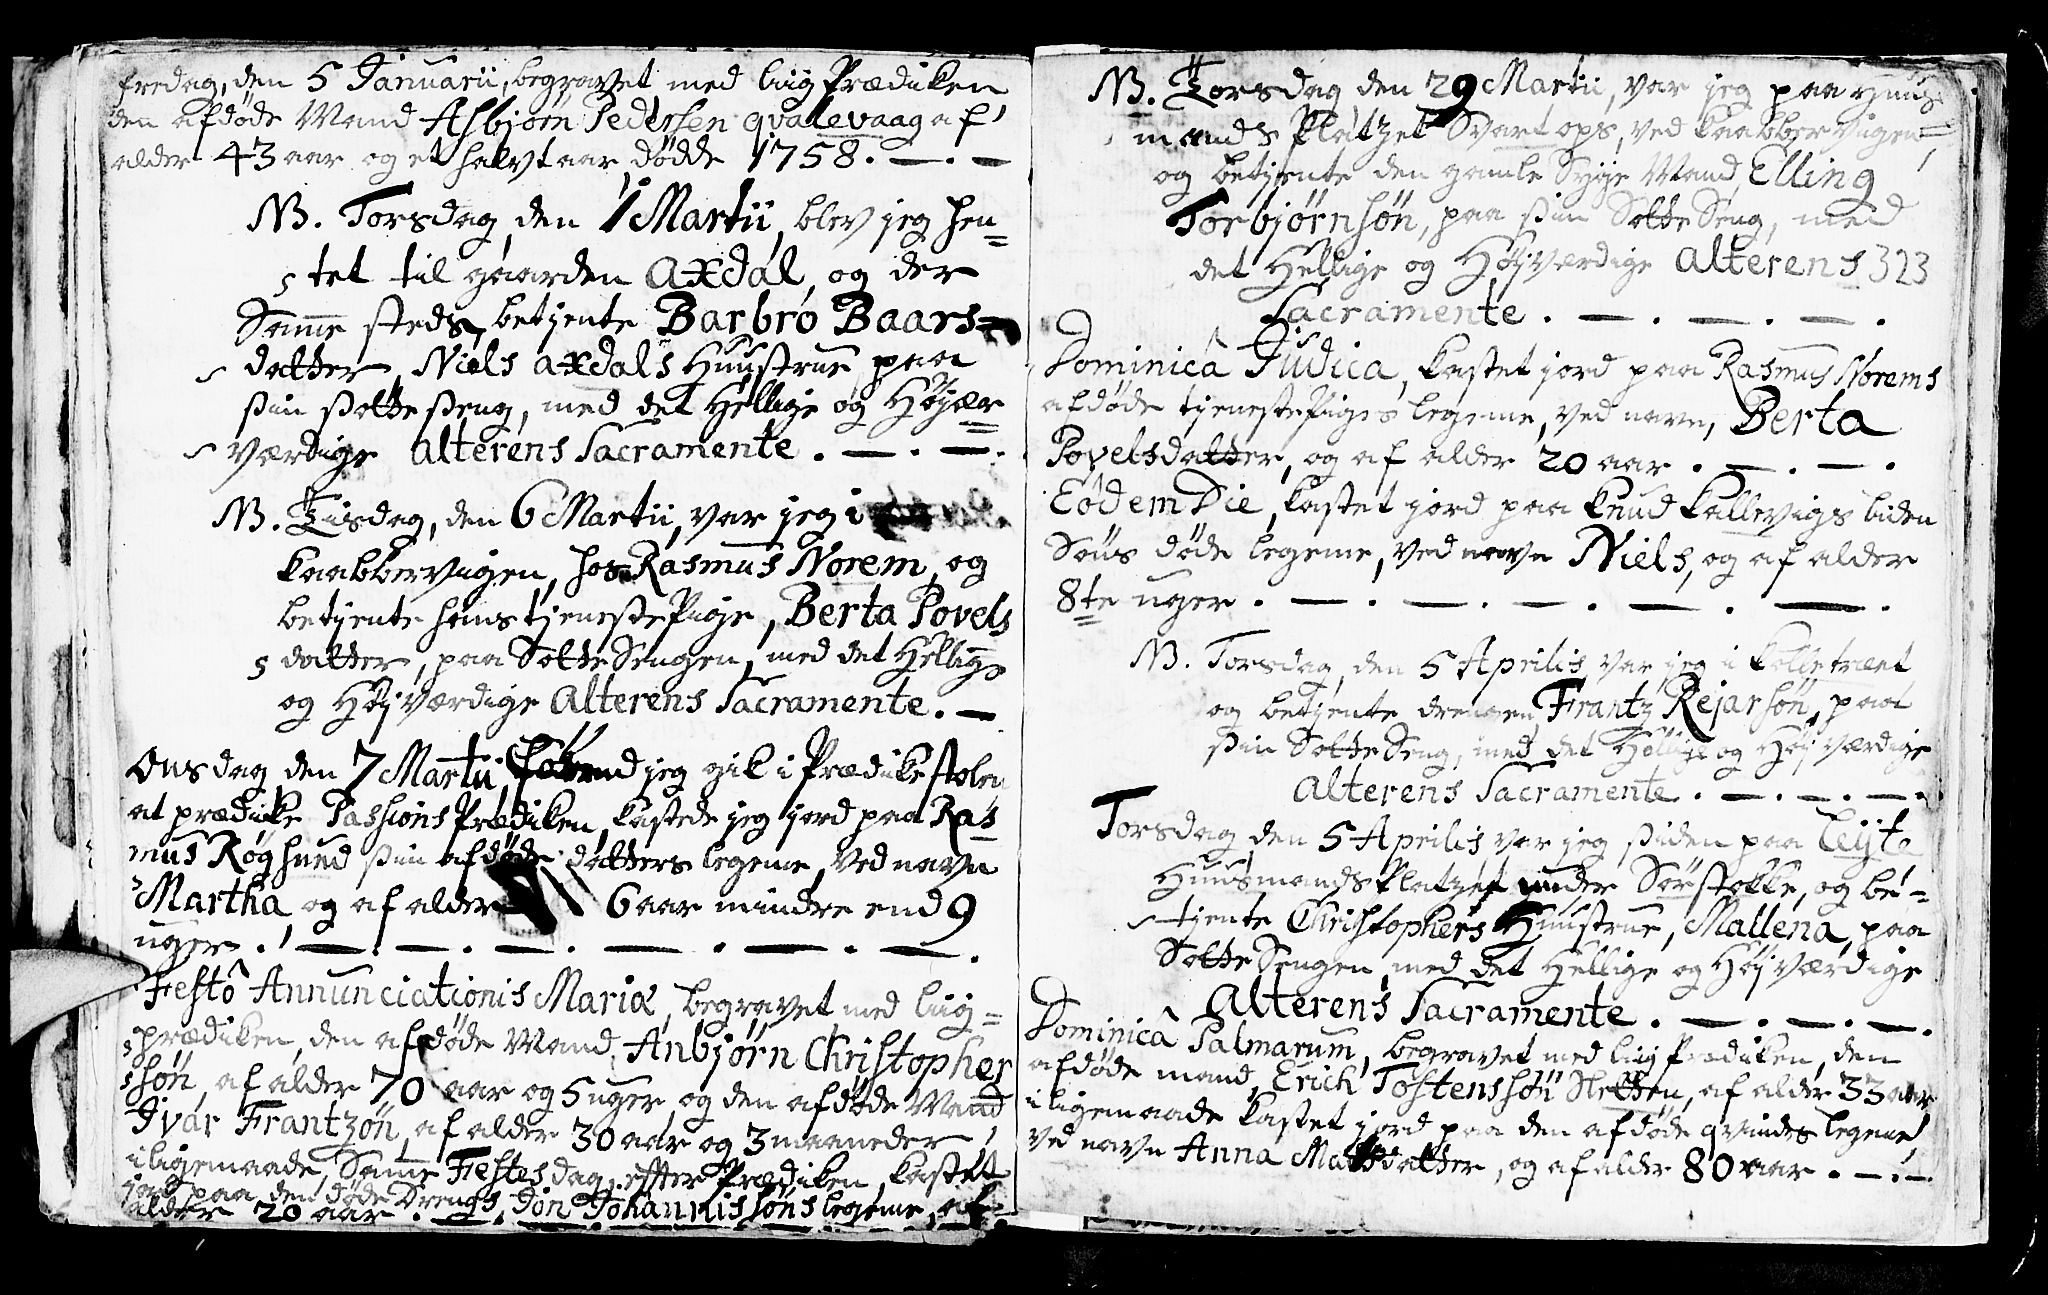 fredag, den 5 Januarii, begravet med liig Prædiken
den afdøde Mand Asbjørn Pedersen qvalevaag af
alder 43 aar og et halvt aar, dødde 1758. — . —
NB. Torsdag, den 1 Martii, blev jeg hen=
tet til gaarden Axdal, og der
Samme steds, betjente Barbro Baars=
datter, Niels Axdals Huustrue, paa
sin sotte seng, med det Hellige og Højær
værdige Alterens Sacramente . — . — .
NB. Tisdag, den 6 Martii, var jeg i
Kaabbervigen, hos Rasmus Norem, og
betjente hans tjeneste Pige, Berta Povels
datter, paa Sotte Sengen, med det Hellige
og Højværdige Alterens Sacramente. —
Onsdag den 7 Martii, førend jeg gik i Prædikestolen
at prædike Passions Prædiken, kastede jeg jord paa Ras=
mus Røghsund sin afdøde datters legeme, ved navn
Martha, og af alder 6 aar mindre end 9
uger. — . — . — . — . — .
Festô Annunciationis Mariæ, begravet med liig=
prædiken, den afdøde Mand, Anbjørn Christopher
søn, af alder 70 aar og 5 uger, og den afdøde Mand
Ivar Frantzøn, af alder 30 aar og 3 maaneder,
iligemaade, Samme Festes dag, efter Prædiken, kastet
jord paa den døde Drengs, Jon Johannissøns legeme, af
alder 20 aar. — .
NB. Torsdag den 29 Martii, var jeg paa Huus=
mands Platzet Svartops, ved Kaabbervigen,
og betjente den gamle Syge Mand, Elling
Torbjørnsøn, paa sin Sotte Seng, med
det Hellige og Højværdige Alterens 323
Sacramente . — . — . — .
Dominicâ Judica, kastet jord paa Rasmus Norems
afdøde tjeneste Piges legeme, ved navn, Berta
Povelsdatter, og af alder 20 aar . — . — .
Eodem Die, kastet jord paa Knud Kallevigs liden
Søns døde legeme, ved navn Niels, og af alder
8te uger . — . — . — . — . — .
NB. Torsdag, den 5 Aprilis, var jeg i Kolletræet
og betjente drengen Frantz Rejarsøn, paa
sin Sotte Seng, med det Hellige og Højværdige
Alterens Sacramente . — . — . — .
Torsdag den 5 Aprilis, var jeg siden paa Leyte
Huusmands Platzet under Sørstokke, og be=
tjente Christophers Huustrue, Mallena, paa
Sotte Sengen, med det Hellige og Højværdige
Alterens Sacramente . — . — . — .
Dominicâ Palmarum, begravet med liig Prædiken, den
afdøde mand, Erich Tostenssøn Sletten, af alder 33 aar
iligemaade kastet jord paa den afdøde qvindes legeme,
ved navn Anna Matsdatter, og af alder 80 aar . — . —